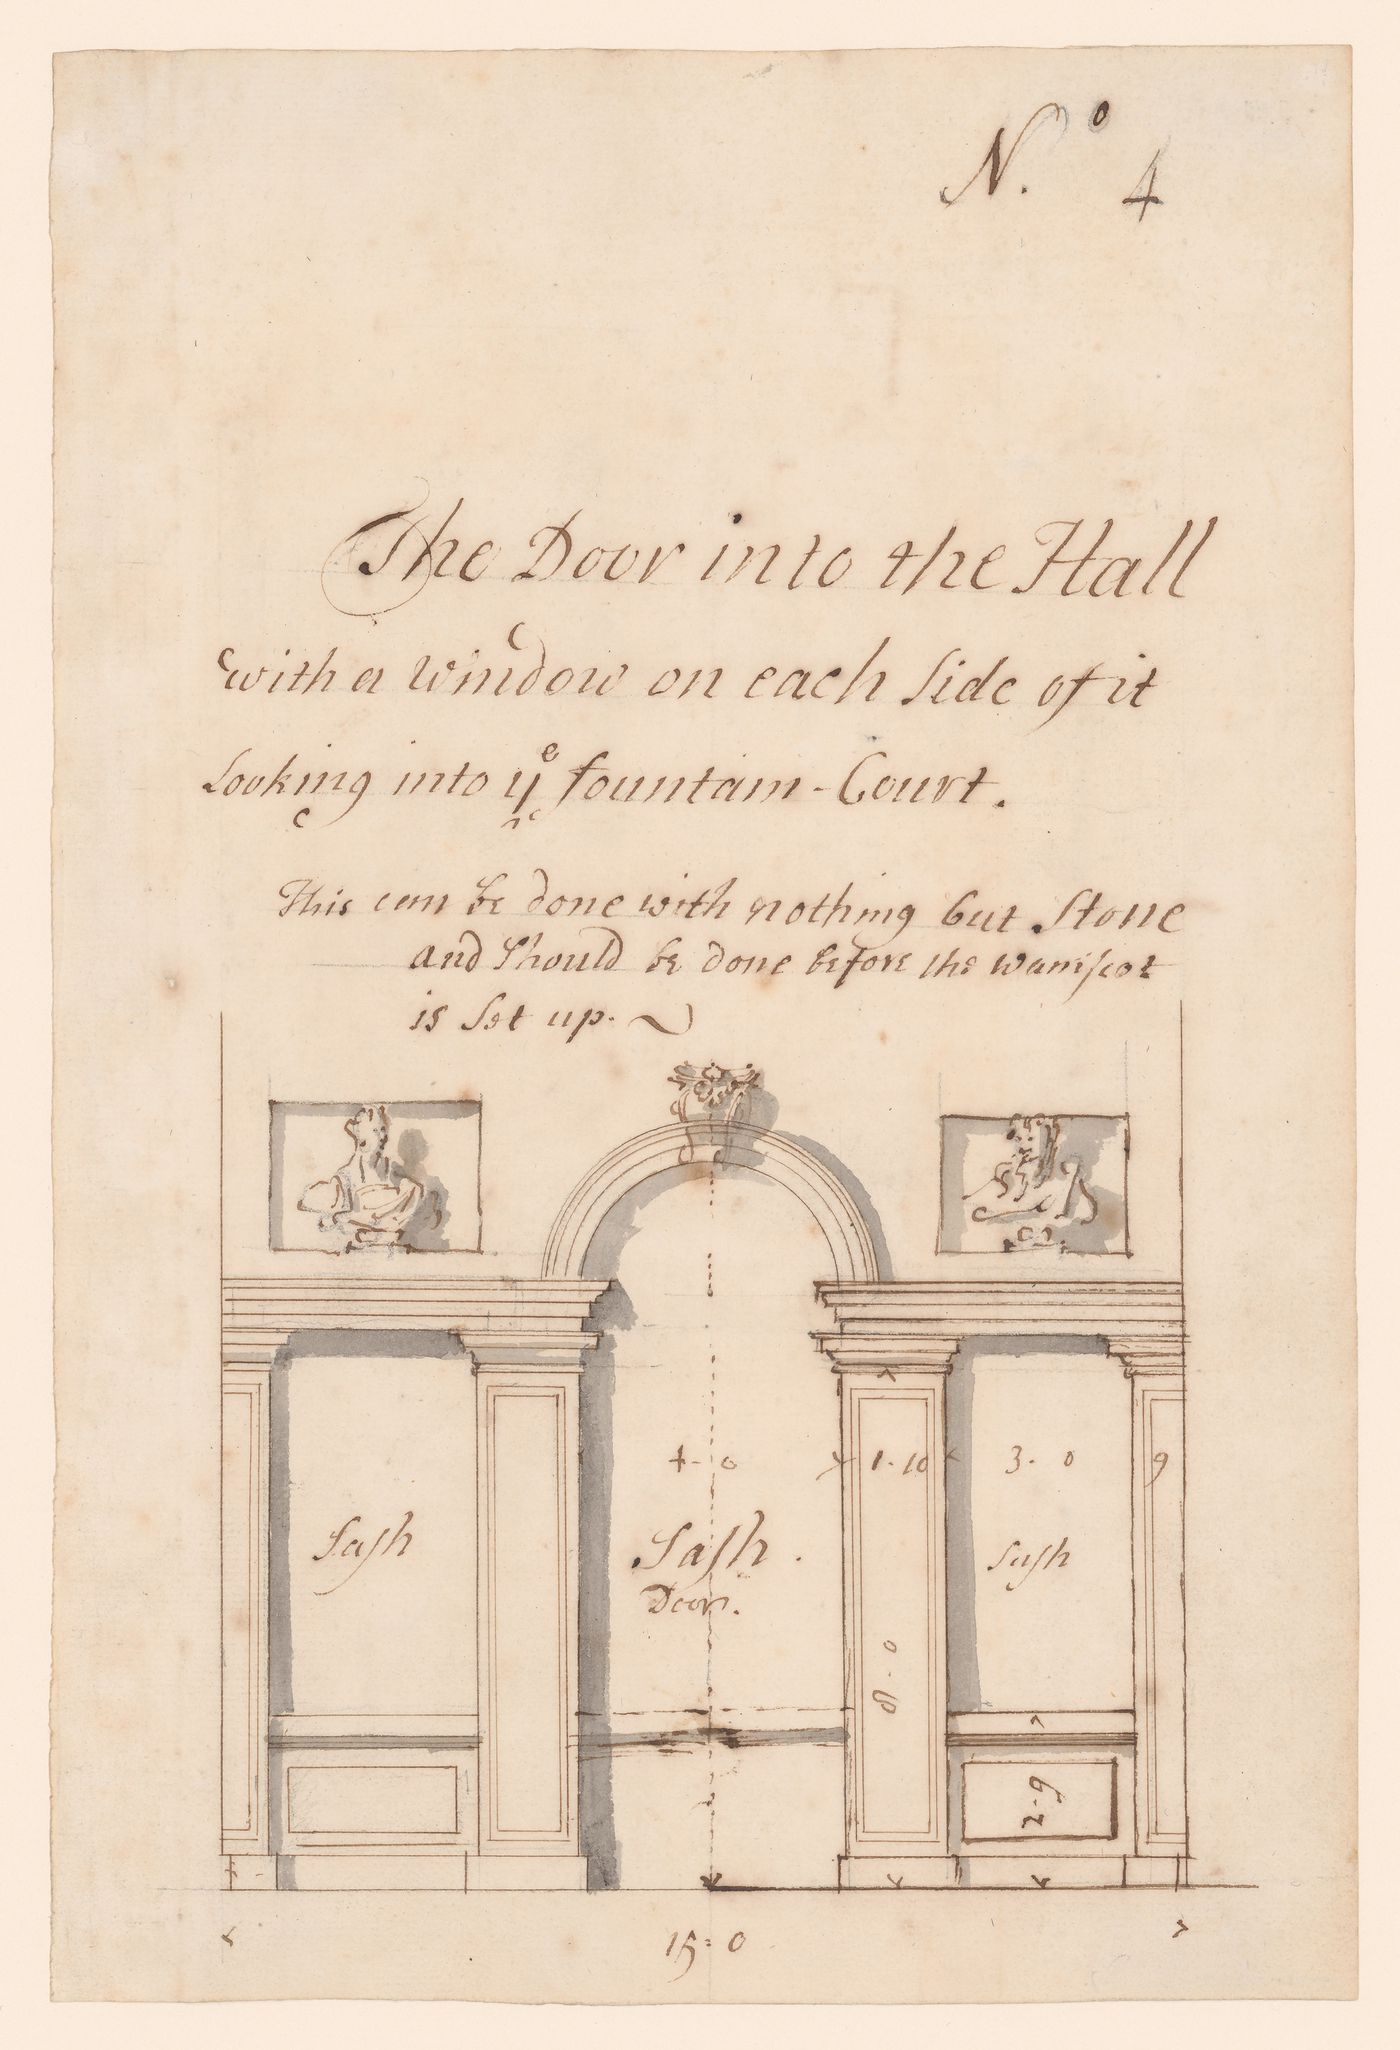 N.º 4
The Door into the Hall
with a window on each Side of it
Looking into yᵉ fountain-Court.
This can be done with nothing but Stone
and Should be done before the wainſcot
is Set up.
4-0
1-10
3-0
9
Saſh
Saſh
Saſh
Door.
8-0
2-9
15=0